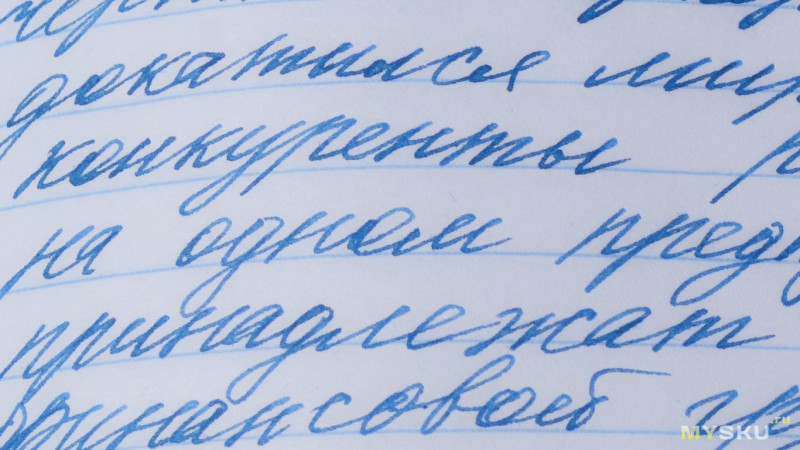 докатился мир
конкуренты
на одном
принадлежат
финансовой
MYSKU.ru